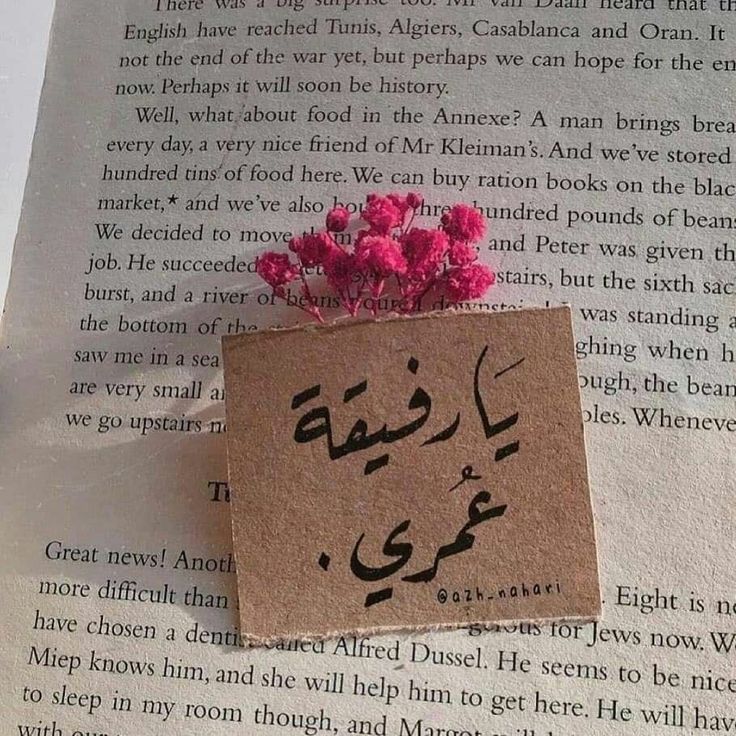 There was a big surprise too. Mr van Daan heard that th
English have reached Tunis, Algiers, Casablanca and Oran. It
not the end of the war yet, but perhaps we can hope for the en
now. Perhaps it will soon be history.
Well, what about food in the Annexe? A man brings brea
every day, a very nice friend of Mr Kleiman's. And we've stored
hundred tins of food here. We can buy ration books on the blac
market,* and we've also bou three hundred pounds of beans
We decided to move them, and Peter was given th
job. He succeeded stairs, but the sixth sac
burst, and a river of beans poured downstai was standing a
the bottom of the
saw me in a sea ghing when h
are very small a ough, the bean
we go upstairs n oles. Wheneve
يَا رفيقة
عُمري.
@azh_nahari
Tu
Great news! Anoth . Eight is n
more difficult than
have chosen a dentist called Alfred Dussel. He seems to be nice
gerous for Jews now. W
Miep knows him, and she will help him to get here. He will hav
to sleep in my room though, and Margot will
with our